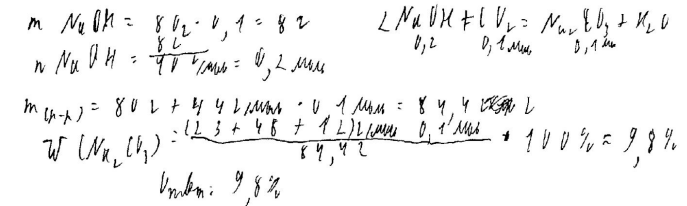 m NaOH = 80г · 0,1 = 8г
2NaOH + CO₂ = Na₂CO₃ + H₂O
0,2 0,1 моль 0,1 моль
n NaOH = 8г / 40 г/моль = 0,2 моль
m(р-р) = 80г + 44г/моль · 0,1 моль = 84,4 г
W(Na₂CO₃) = (23 + 48 + 12)г/моль 0,1 моль / 84,4г · 100% = 9,8%
Ответ: 9,8%